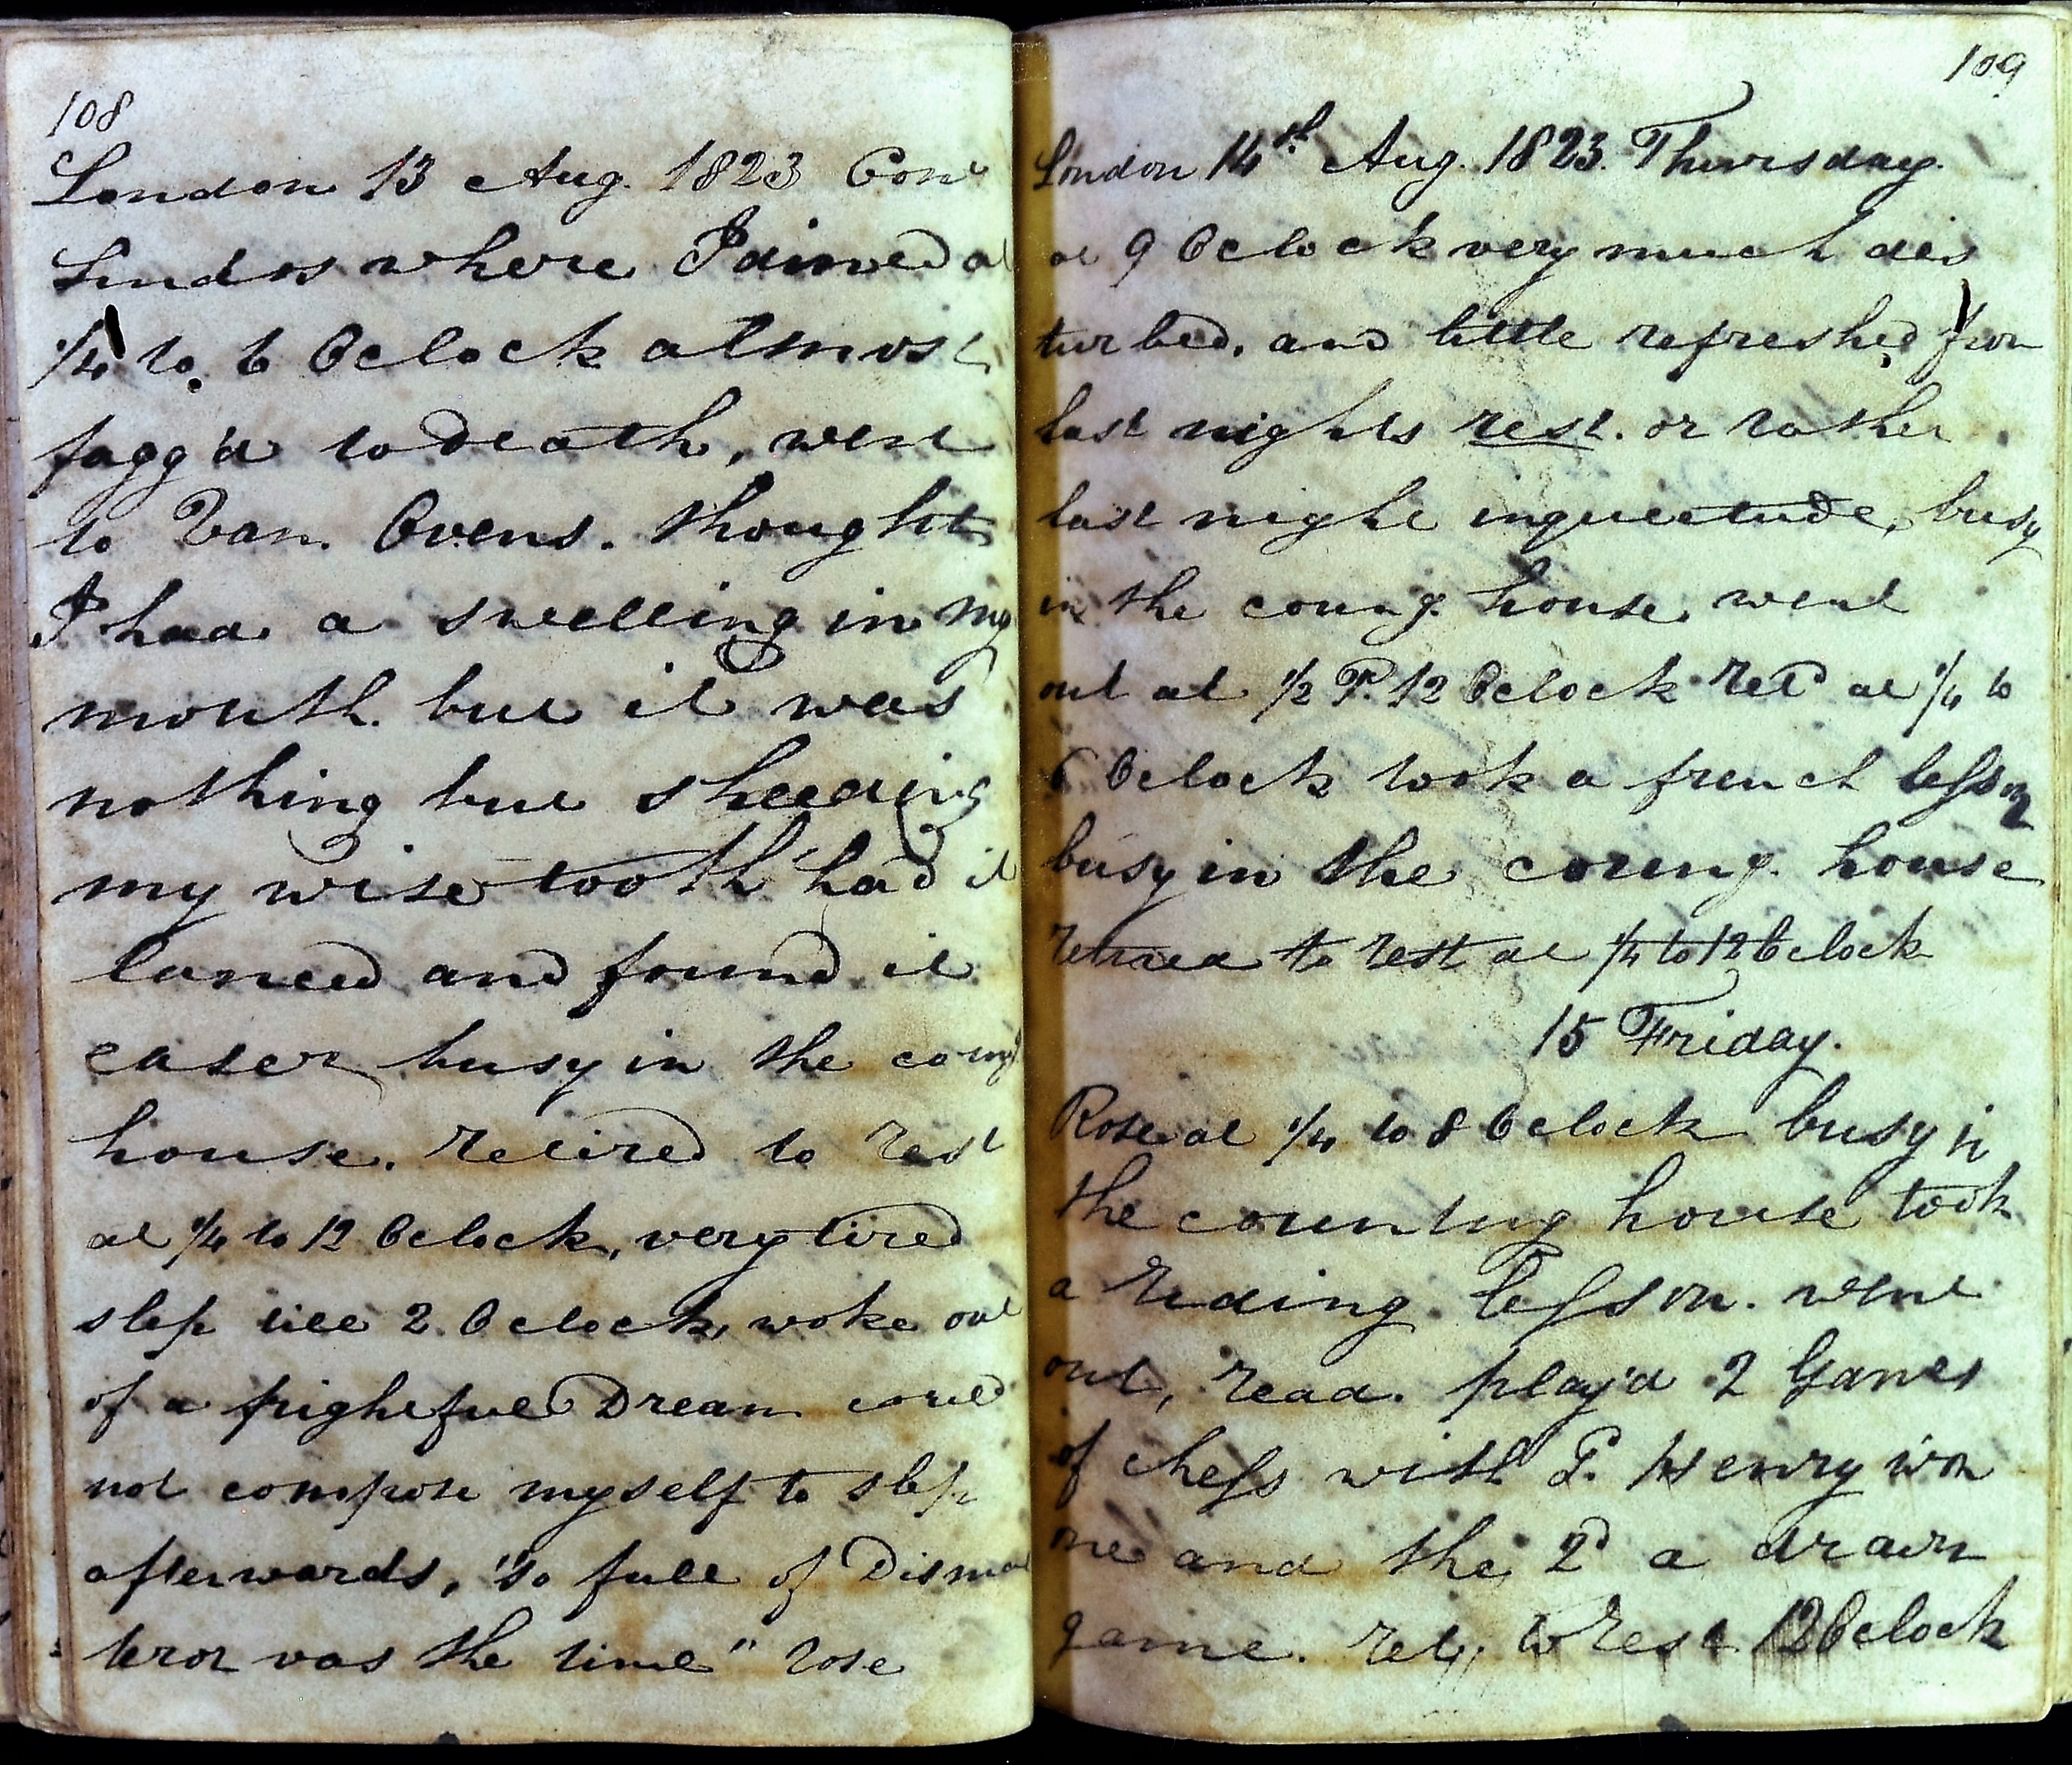 108
London 13 Aug. 1823 Con
Lindos where I dined at
1/4 to 6 Oclock almost
fagg'd to death, went
to Van Ovens. thought
I had a swelling in my
mouth. but it was
nothing but sheeding
my wise tooth had it
lanced and found it
easer busy in the coung
house. retired to rest
at 1/4 to 12 Oclock, very tired
slep till 2 Oclock, woke out
of a frightful Dream could
not compose myself to slep
afterwards, "so full of Dismal
teror was the time" rose
109
London 14th Aug. 1823. Thursday.
at 9 Oclock very much dis
turbed. and little refreshed from
last nights rest. or rather
last night inquietude, busy
in the coung. house. went
out at 1/2 P. 12 Oclock retd at 1/4 to
6 Oclock took a french lesson
busy in the coung. house
retired to rest at 1/4 to 12 Oclock
15 Friday.
Rose at 1/4 to 8 Oclock busy in
the counting house took
a reading lesson. went
out, read. play'd 2 Games
of chess with P. Henry won
one and the 2d a drawn
game. ret. to rest 12 Oclock